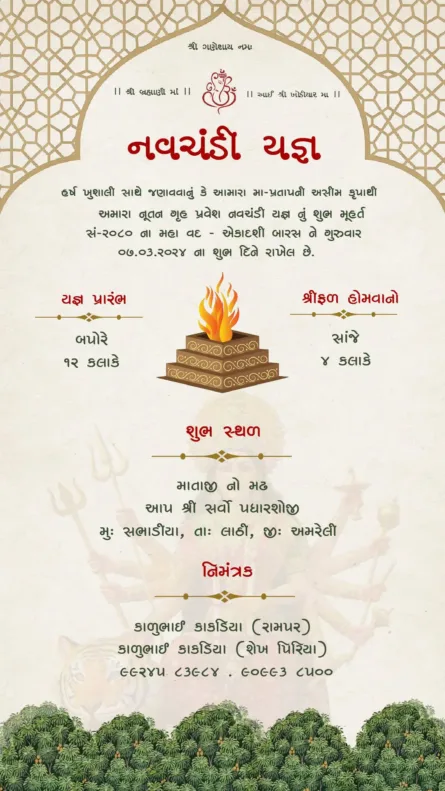 શ્રી ગણેશાય નમઃ
|| શ્રી બ્રહ્માણી માં ||
|| આઈ શ્રી ખોડીયાર મા ||
નવચંડી યજ્ઞ
હર્ષ ખુશાલી સાથે જણાવવાનું કે આમારા મા-પ્રતાપની અસીમ કૃપાથી
અમારા નૂતન ગૃહ પ્રવેશ નવચંડી યજ્ઞ નું શુભ મૂહર્ત
સં-૨૦૮૦ ના મહા વદ - એકાદશી બારસ ને ગુરુવાર
૦૭.૦૩.૨૦૨૪ ના શુભ દિને રાખેલ છે.
યજ્ઞ પ્રારંભ
બપોરે
૧૨ કલાકે
શ્રીફળ હોમવાનો
સાંજે
૪ કલાકે
શુભ સ્થળ
માતાજી નો મઢ
આપ શ્રી સર્વો પધારશોજી
મુઃ સભાડીયા, તાઃ લાઠી, જીઃ અમરેલી
નિમંત્રક
કાળુભાઈ કાકડિયા (રામપર)
કાળુભાઈ કાકડિયા (શેખ પિરિયા)
૯૯૨૪૫ ૮૩૯૮૪ . ૯૦૯૯૩ ૮૫૦૦